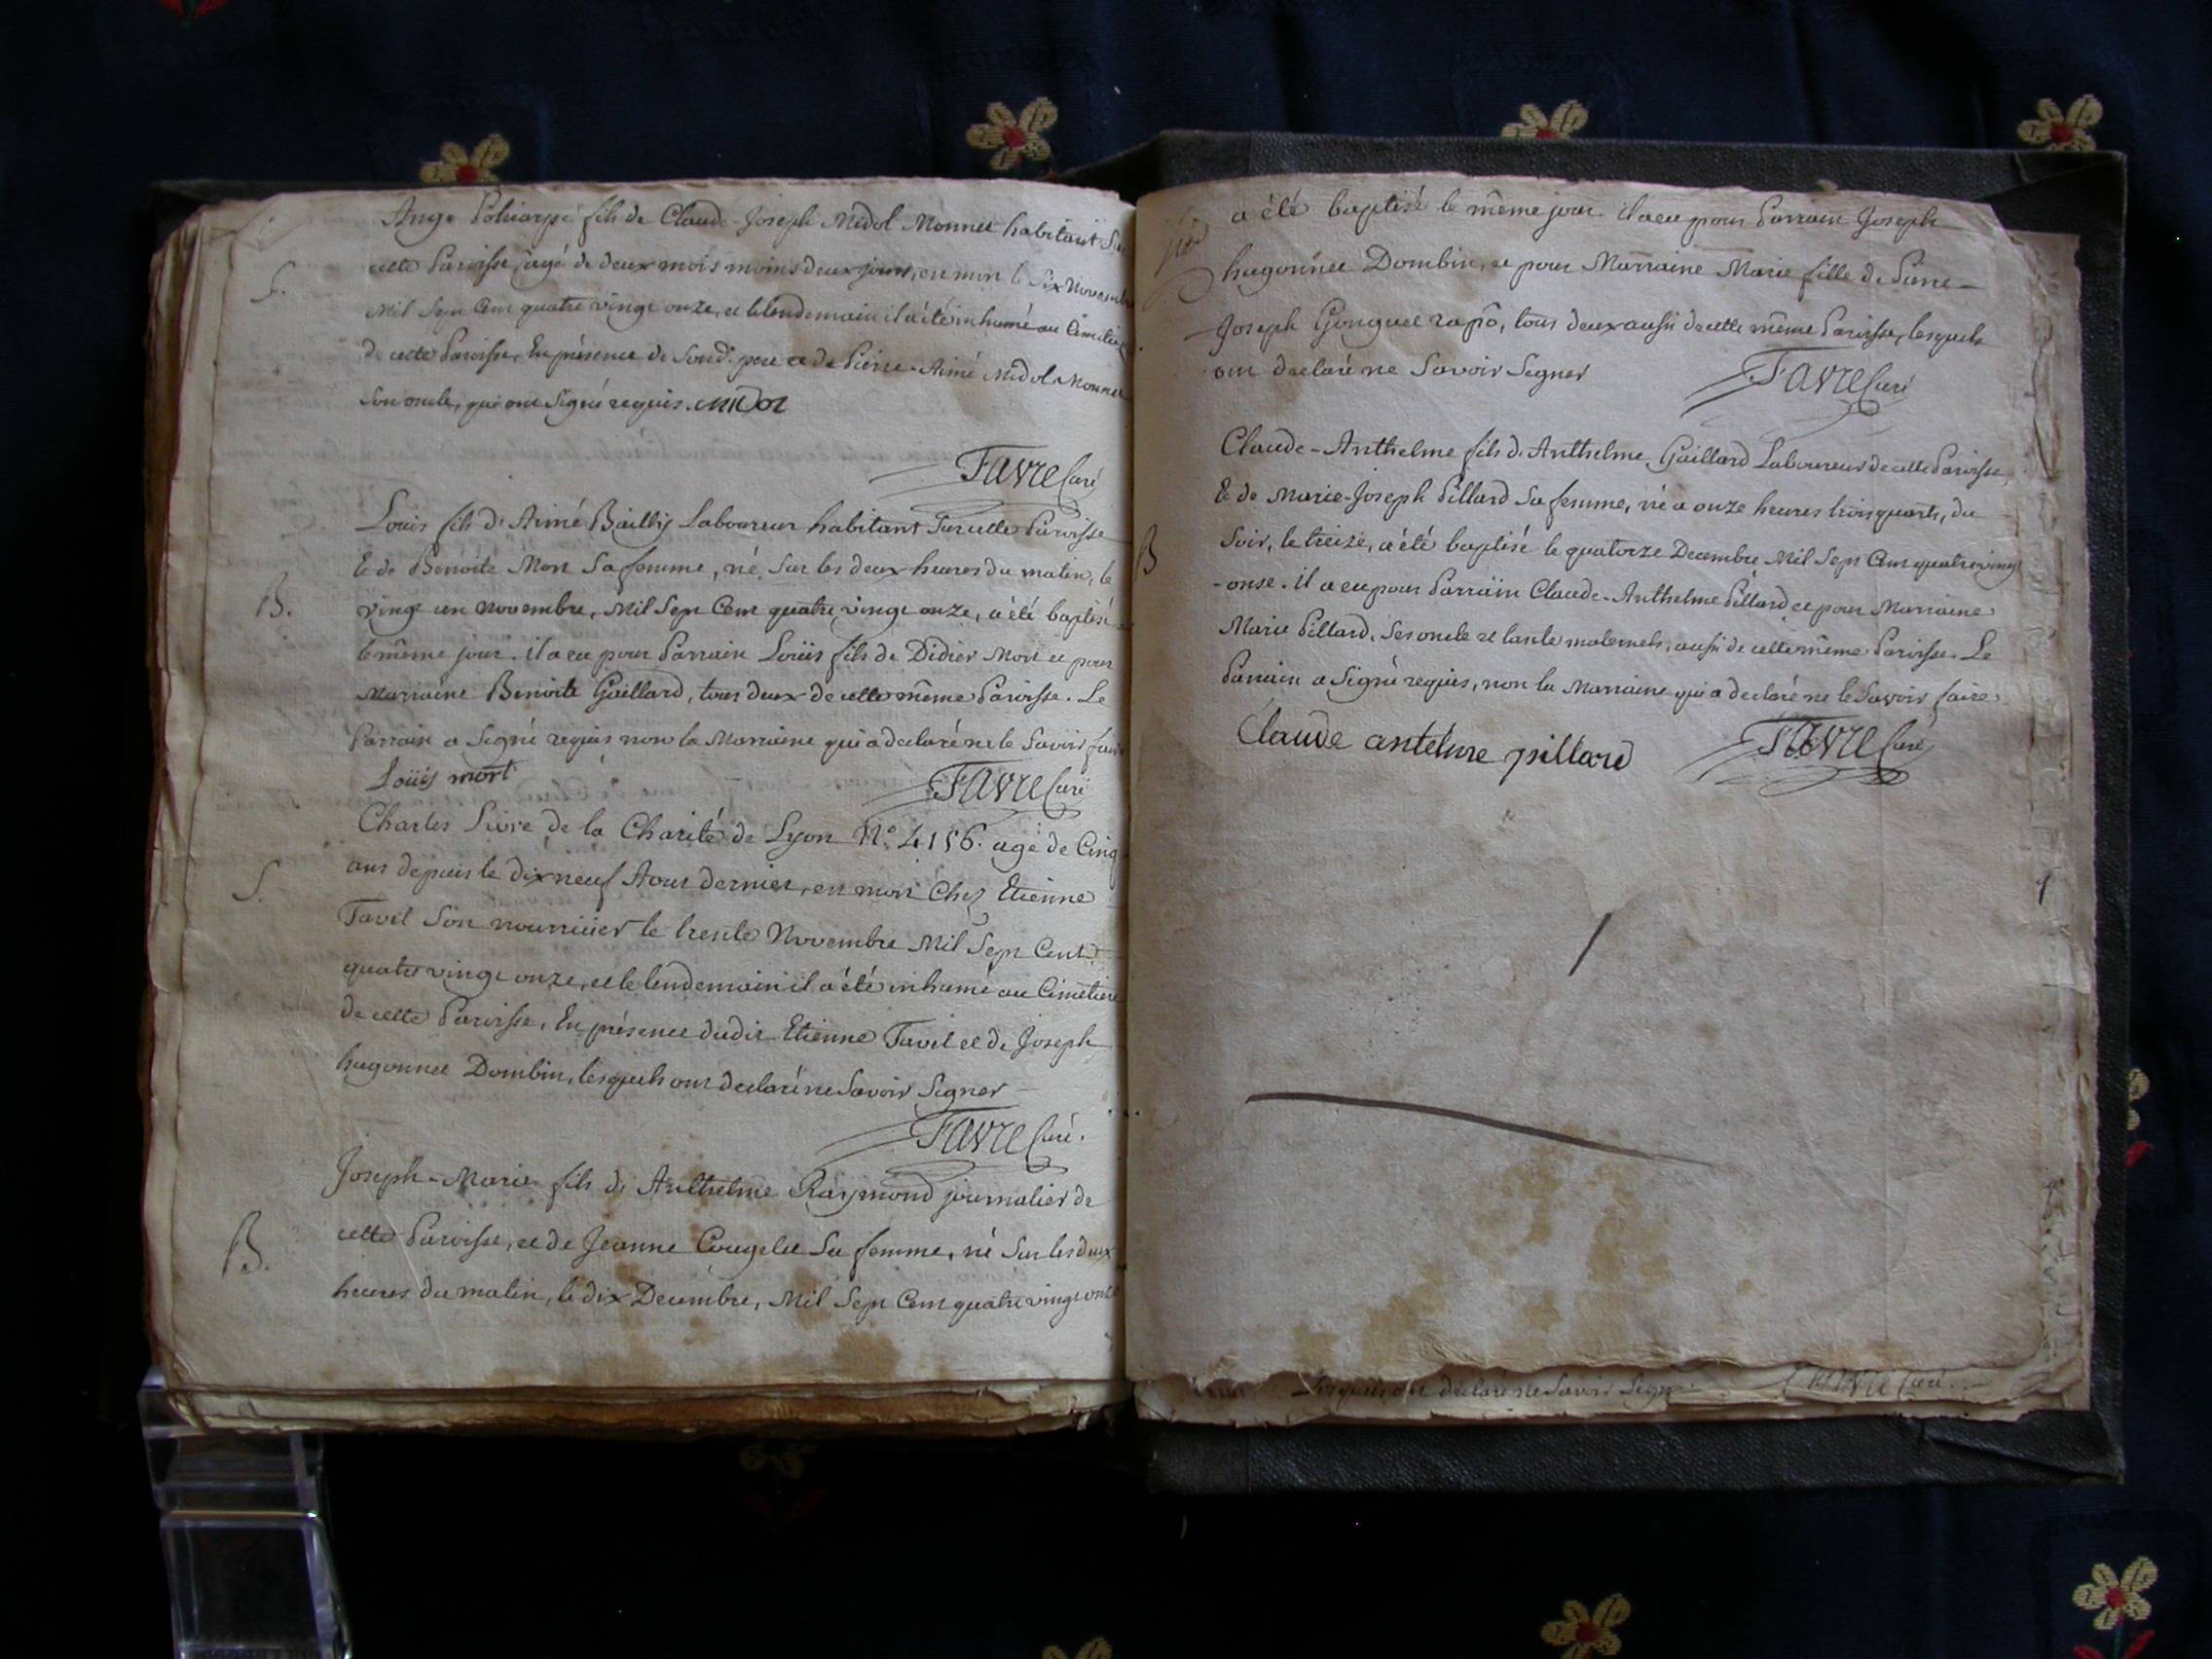 Ange Policarpe fils de Claude-Joseph Midol Monnet habitant Sur
S.
cette Paroisse, agé de deux mois moins deux jours, est mort le Six Novembre
Mil Sept Cent quatre vingt onze, et le lendemain il a été inhumé au Cimetière
de cette Paroisse, En présence de Sond. pere et de Pierre-Aimé Midol Monnet
Son oncle, qui ont Signé requis. MiDol
Favre Curé
Louis fils d'Aimé Bailly Laboureur habitant Sur cette Paroisse
Et de Benoite Mort Sa femme, né Sur les deux heures du matin, le
B.
vingt un Novembre, Mil Sept Cent quatre vingt onze, a été baptisé
le même jour. il a eu pour Parrain Loüis fils de Didier Mort et pour
Marraine Benoite Gaillard, tous deux de cette même Paroisse. Le
Parrain a Signé requis non la Marraine qui a declaré ne le Savoir faire
Loüis mort
Favre Curé
Charles Livre de la Charité de Lyon N.° 4156. agé de Cinq
ans depuis le dix neuf Aout dernier, est mort Chez Etienne
S.
Tavel Son nourricier le trente Novembre Mil Sept Cent
quatre vingt onze, et le lendemain il a été inhumé au Cimetiere
de cette Paroisse, En présence dudit Etienne Tavel et de Joseph
hugonnet Dombin, lesquels ont declaré ne Savoir Signer
Favre Curé.
Joseph-Marie fils d'Anthelme Raymond journalier de
B.
cette Paroisse, et de Jeanne Cougelet Sa femme, né Sur les deux
heures du matin, le dix Decembre, Mil Sept Cent quatre vingt onze
a été baptisé le même jour. il a eu pour Parrain Joseph
hugonnet Dombin, et pour Marraine Marie fille de Pierre-
Joseph Gonguet rapô, tous deux aussi de cette même Paroisse, lesquels
ont declaré ne Savoir Signer
Favre Curé
Claude-Anthelme fils d'Anthelme Gaillard Laboureur de cette Paroisse,
Et de Marie-Joseph Pillard Sa femme, né a onze heures trois quarts, du
B
Soir, le treize, a été baptisé le quatorze Decembre Mil Sept Cent quatre vingt
-onse. il a eu pour Parrain Claude-Anthelme Pillard et pour Marraine
Marie Pillard, Ses oncle et tante maternels, aussi de cette même Paroisse. Le
Parrain a Signé requis, non la Marraine qui a declaré ne le Savoir faire
Claude antelme pillard
Favre Curé
Lesquels ont declaré ne Savoir Signer Favre Curé